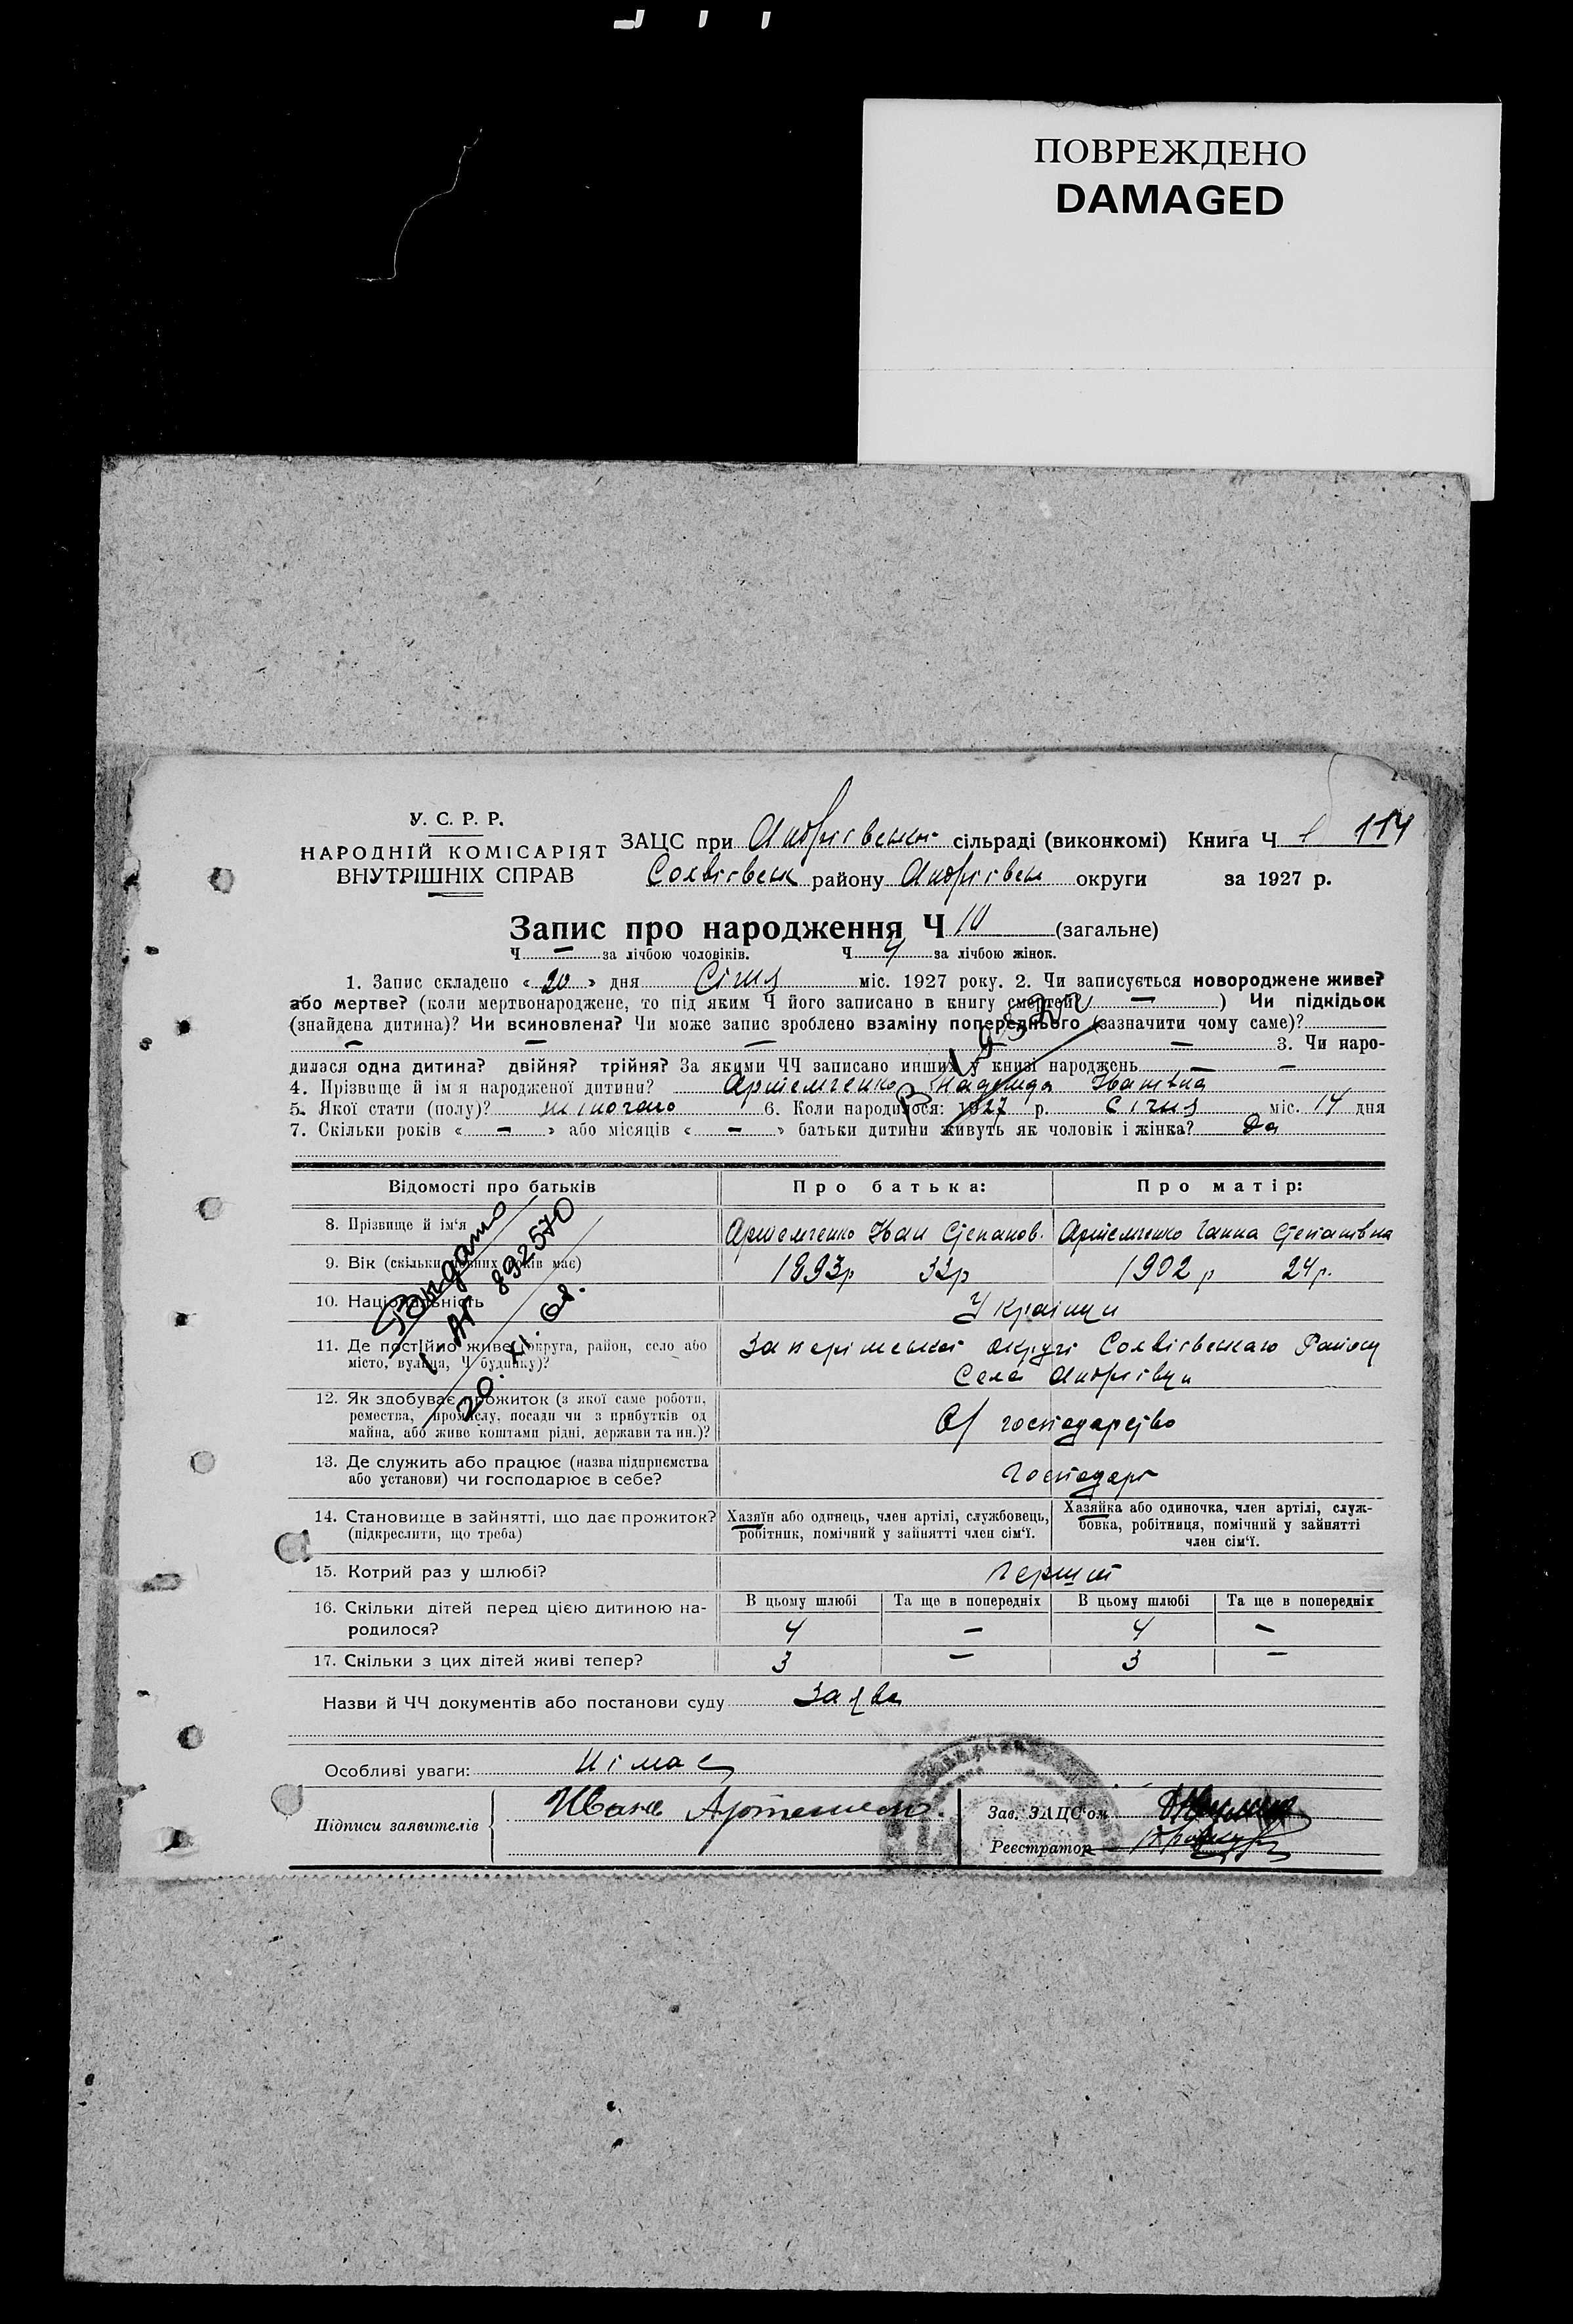 ПОВРЕЖДЕНО
DAMAGED
У. С. Р. Р.
НАРОДНІЙ КОМІСАРІЯТ
ВНУТРІШНІХ СПРАВ
ЗАЦС при сільраді (виконкомі) Книга Ч 114
району округи за 1927 р.
Запис про народження Ч 10 (загальне)
Ч — за лічбою чоловіків. Ч 4 за лічбою жінок.
1. Запис складено « 20 » дня Січня міс. 1927 року. 2. Чи записується новороджене живе?
або мертве? (коли мертвонароджене, то під яким Ч його записано в книгу смертей? — ) Чи підкідьок
(знайдена дитина)? Чи всиновлена? Чи може запис зроблено взаміну попереднього (зазначити чому саме)?
— — — — 3. Чи наро-
дилася одна дитина? двійня? трійня? За якими ЧЧ записано инших у книзі народжень — —
4. Прізвище й ім'я народженої дитини? Артемченко Надежда Іванівна
5. Якої стати (полу)? жіночого 6. Коли народилося: 1927 р. Січня міс. 14 дня
7. Скільки років « — » або місяців « — » батьки дитини живуть як чоловік і жінка? Да
Відомості про батьків Про батька: Про матір:
8. Прізвище й ім'я Артемченко Іван Степанов. Артемченко Ганна Степанівна
9. Вік (скільки повних років має) 1893р 33р 1902 р 24 р.
10. Національність Українци
11. Де постійно живе (округа, район, село або
місто, вулиця, Ч будинку)? округи Района
Села Андріівци
12. Як здобуває прожиток (з якої саме роботи,
ремества, промислу, посади чи з прибутків од
майна, або живе коштами рідні, держави та ин.)? господарство
13. Де служить або працює (назва підприємства
або установи) чи господарює в себе? Господарі
Видано
892570
20. XI. 68.
14. Становище в зайнятті, що дає прожиток?
(підкреслити, що треба)
Хазяїн або одинець, член артілі, службовець,
робітник, помічний у зайнятті член сім'ї.
Хазяйка або одиночка, член артілі, служ-
бовка, робітниця, помічний у зайнятті
член сім'ї.
15. Котрий раз у шлюбі? Перший
16. Скільки дітей перед цією дитиною на-
родилося?
В цьому шлюбі Та ще в попередніх В цьому шлюбі Та ще в попередніх
4 — 4 —
17. Скільки з цих дітей живі тепер? 3 — 3 —
Назви й ЧЧ документів або постанови суду Заява
Особливі уваги: Німає
Підписи заявителів Иванъ
Зав. ЗАЦС'ом
Реєстратор